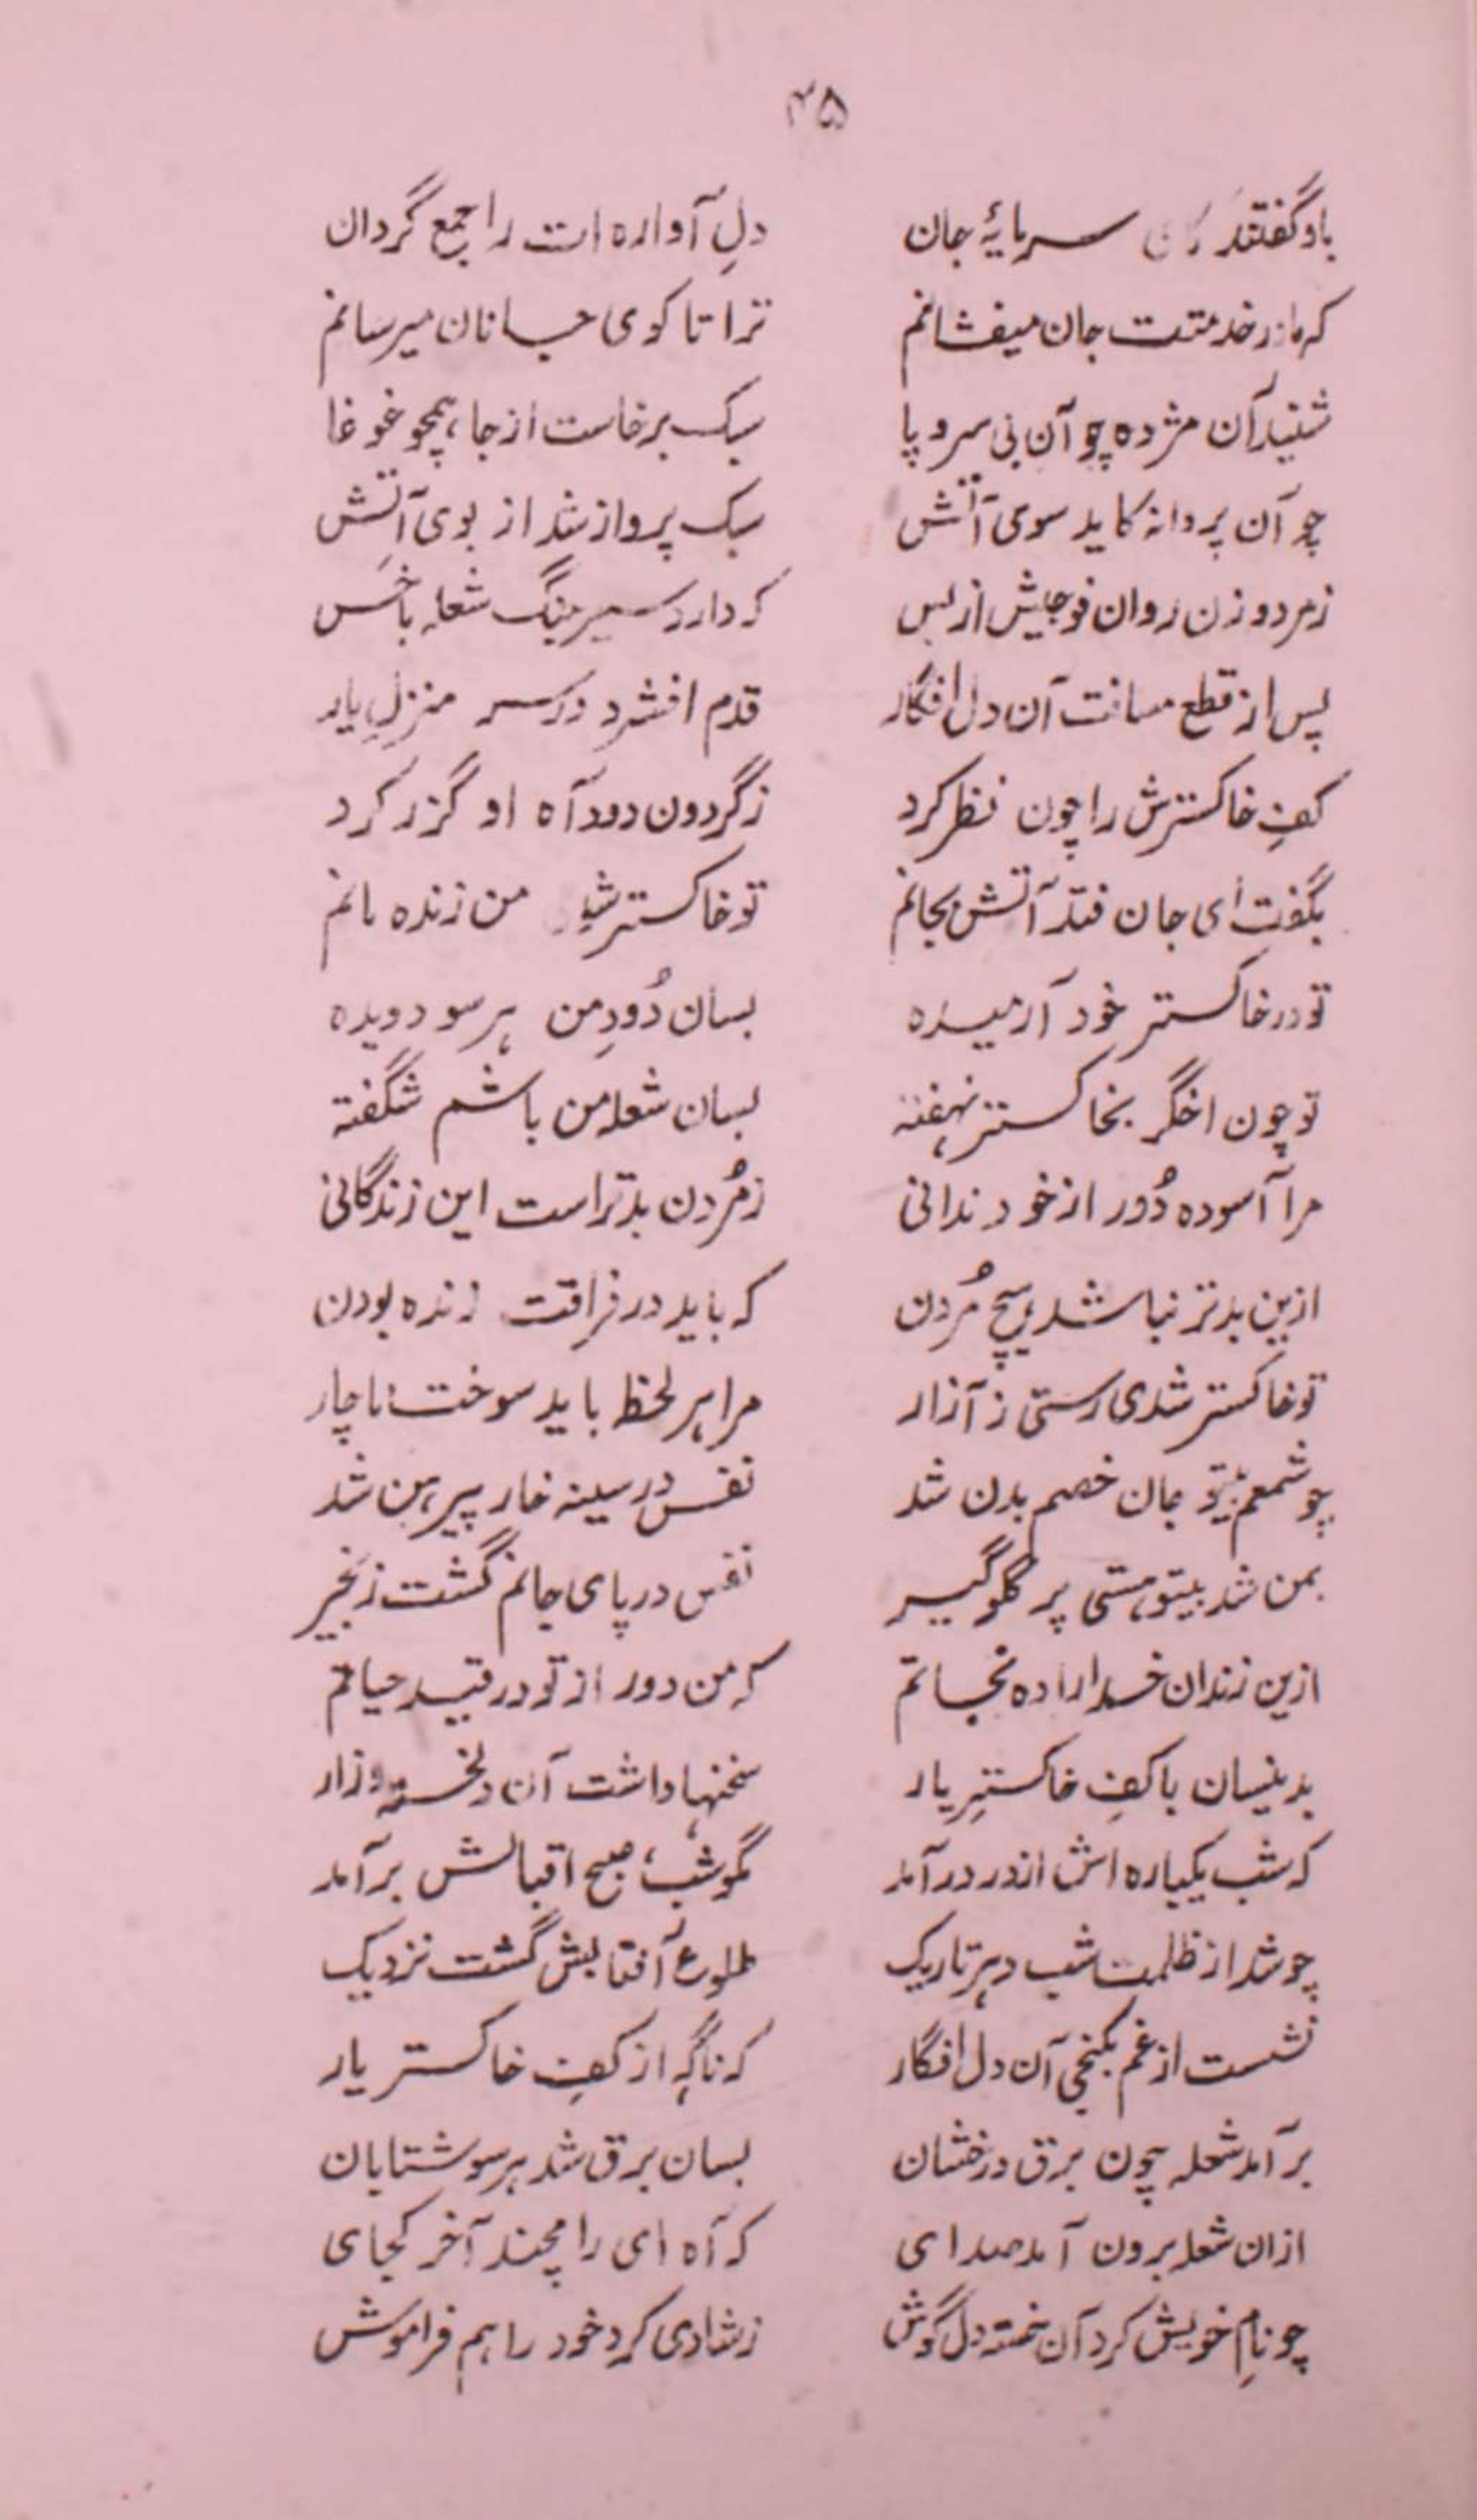 ۳۵
باو گفتند کای سرمایۀ جان دلِ آواره ات را جمع گردان
که ما در خدمتت جان میفشانم ترا تا کوی جانان میرسانم
شنید آن مژده چو آن بی سر و پا سبک برخاست از جا، همچو غوغا
چو آن پروانه کاید سوی آتش سبک پرواز شد از بوی آتش
ز مرد و زن روان فوجیش از پس که دارد سیر جنگ شعله با خس
پس از قطع مسافت آن دل افگار قدم افشرد در سر منزلِ یار
کفِ خاکسترش را چون نظر کرد ز گردون دود آه او گزر کرد
بگفت ای جان فتد آتش بجانم تو خاکستر شدی من زنده مانم
تو در خاکستر خود آرمیده بسان دُودِ من هر سو دویده
تو چون اخگر بخاکستر نهفته بسان شعله من باشم شگفته
مرا آسوده دُور از خود ندانی ز مُردن بدتر است این زندگانی
ازین بدتر نباشد هیچ مُردن که باید در فراقت زنده بودن
تو خاکستر شدی رستی ز آزار مرا هر لحظه باید سوخت ناچار
چو شمعم بیتو جان خصم بدن شد نفس در سینه خار پیرهن شد
بمن شد بیتو هستی پر گلوگیر نفس در پای جانم گشت زنجیر
ازین زندان خدا را ده نجاتم که من دور از تو در قید حیاتم
بدینسان با کفِ خاکسترِ یار سخنها داشت آن دلخسته و زار
که شب یکباره اش از در درآمد مگو شب، صبح اقبالش برآمد
چو شد از ظلمت شب دهر تاریک طلوع آفتابش گشت نزدیک
نشست از غم بکنجی آن دل افگار که ناگه از کفِ خاکستر یار
برآمد شعله چون برق درخشان بسان برق شد هر سو شتابان
ازان شعله برون آمد صدای که آه ای رامچند آخر کجای
چو نامِ خویش کرد آن خسته دل گوش ز شادی کرد خود را هم فراموش